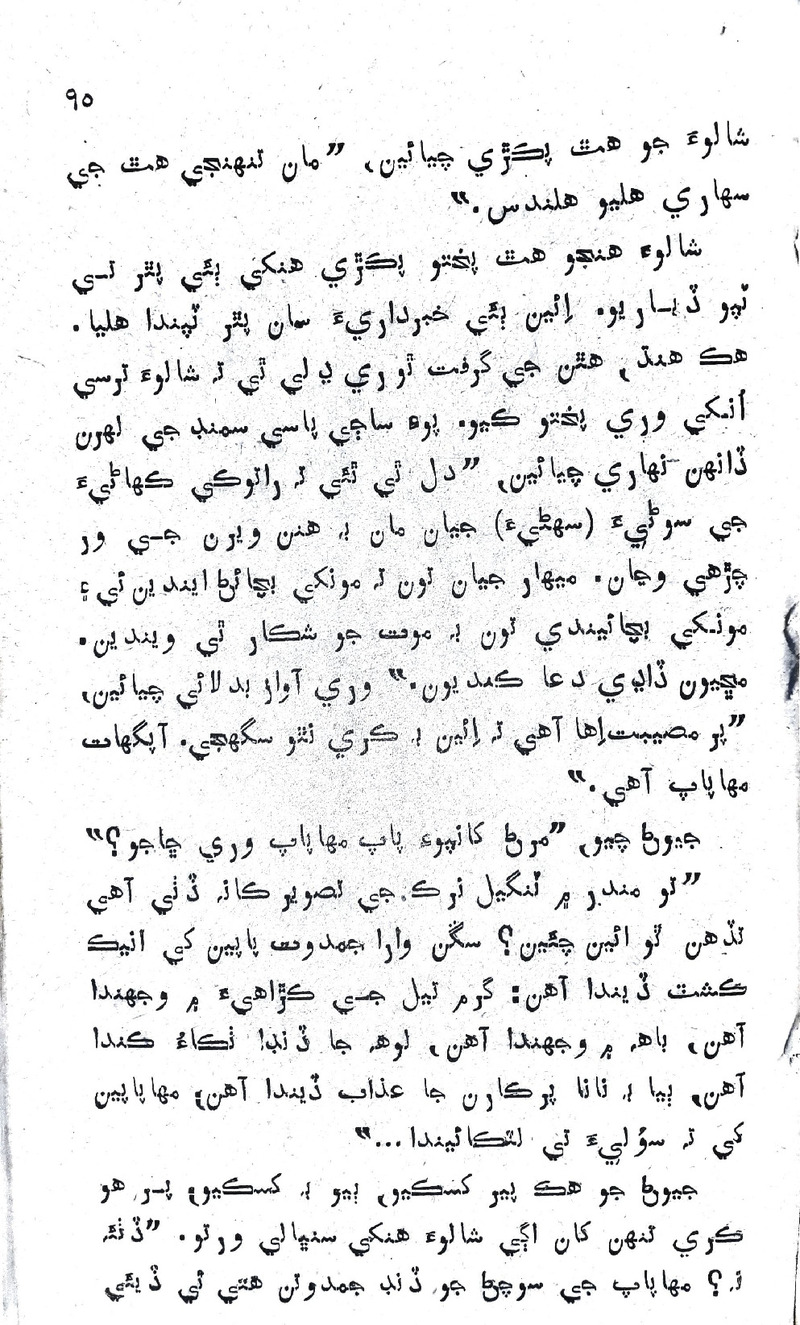 ٩٥
شالوءَ جو هٿ پڪڙي چيائين، ”مان تنهنجي هٿ جي
سهاري هليو هلندس.“
شالوءَ هنجو هٿ پختو پڪڙي هنکي ٻئي پٿر تي
ٽپو ڏيارِيو. اِئين ٻئي خبرداريءَ سان پٿر ٽپندا هليا.
هڪ هنڌ، هٿن جي گرفت ٿوري ڍلي ٿي ته شالوءَ ترسي
اُنکي وري پختو ڪيو. پوءِ ساڄي پاسي سمنڊ جي لهرن
ڏانهن نهاري چيائين، ”دل ٿي ٿئي ته راتوڪي ڪهاڻيءَ
جي سوڻيءَ (سهڻيءَ) جيان مان به هنن ويرن جي ور
چڙهي وڃان. ميهار جيان تون ته مونکي بچائڻ ايندين ئي ۽
مونکي بچائيندي تون به موت جو شڪار ٿي ويندين.
مڇيون ڏاڍي دعا ڪنديون.“ وري آواز بدلائي چيائين،
”پر مصيبت اِها آهي ته اِئين به ڪري نٿو سگهجي. آپگهات
مهاپاپ آهي.“
جيوڻ چيو، ”مرڻ کانپوءِ پاپ مهاپاپ وري ڇاجو؟“
”تو مندر ۾ ٽنگيل نرڪ جي تصوير ڪانه ڏٺي آهي
تڏهن ٿو ائين چئين؟ سڱن وارا جمدوت پاپين کي انيڪ
ڪشٽ ڏيندا آهن: گرم تيل جي ڪڙاهيءَ ۾ وجهندا
آهن، باهه ۾ وجهندا آهن، لوهه جا ڏنڊا ٺڪاءُ ڪندا
آهن، ٻيا به نانا پرڪارن جا عذاب ڏيندا آهن؛ مهاپاپين
کي ته سوُليءَ تي لٽڪائيندا...“
جيوڻ جو هڪ پير کسڪيو، ٻيو به کسڪيو؛ پر هو
ڪري تنهن کان اڳي شالوءَ هنکي سنڀالي ورتو. ”ڏٺئه
نه؟ مهاپاپ جي سوچڻ جو ڏنڊ جمدوتن هتي ئي ڏيئي